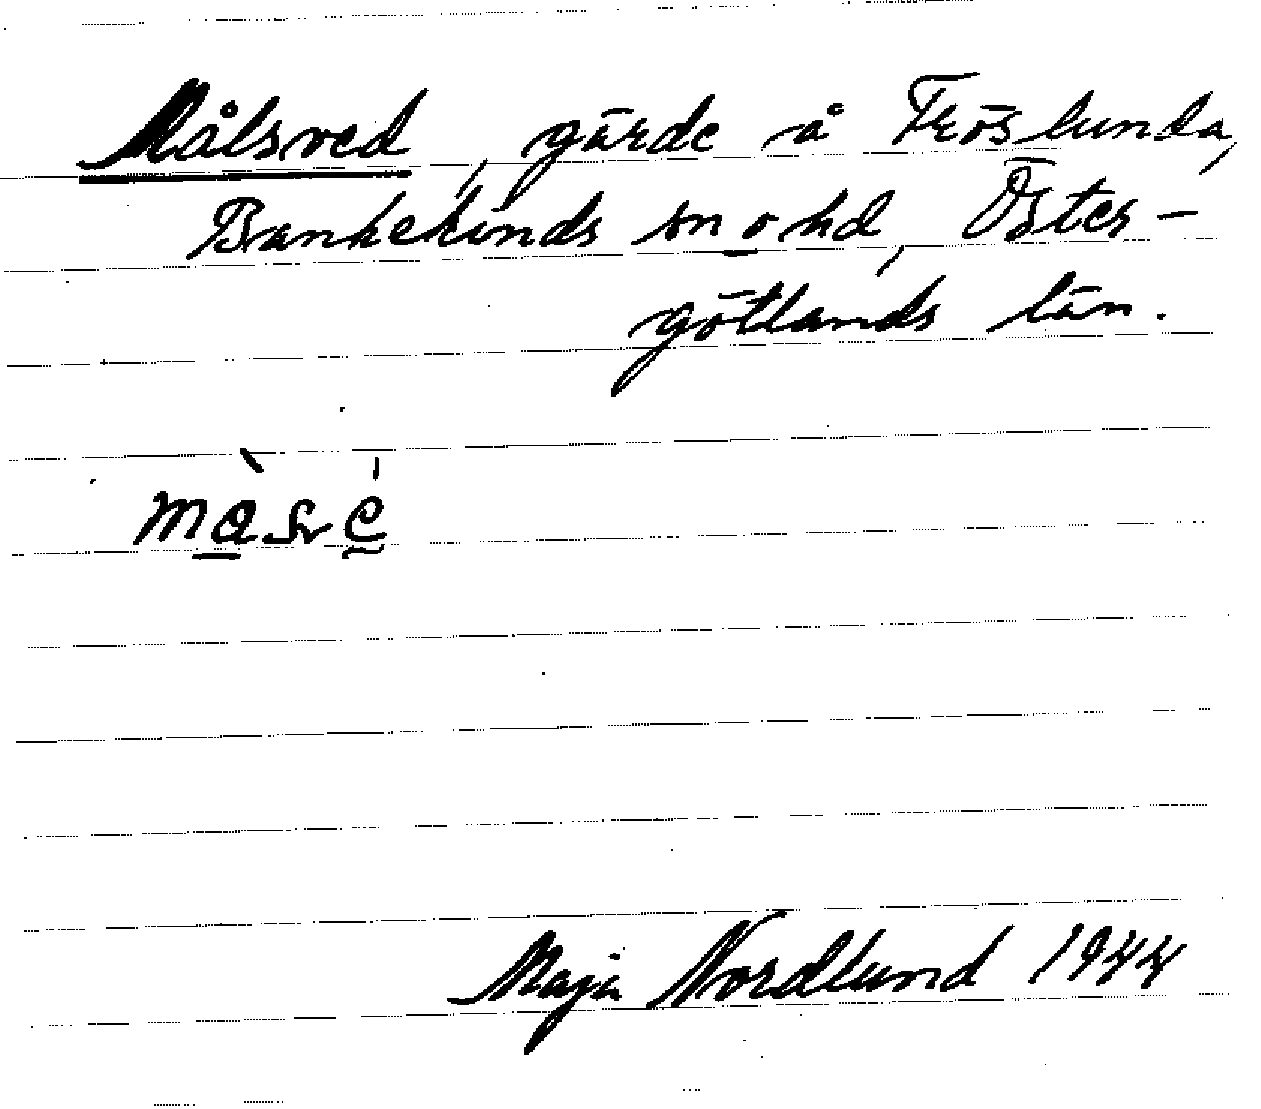 Målsved, gärde å Fröslunda,
Bankekinds sn o hd, Öster-
götlands län.
Maja Nordlund 1944